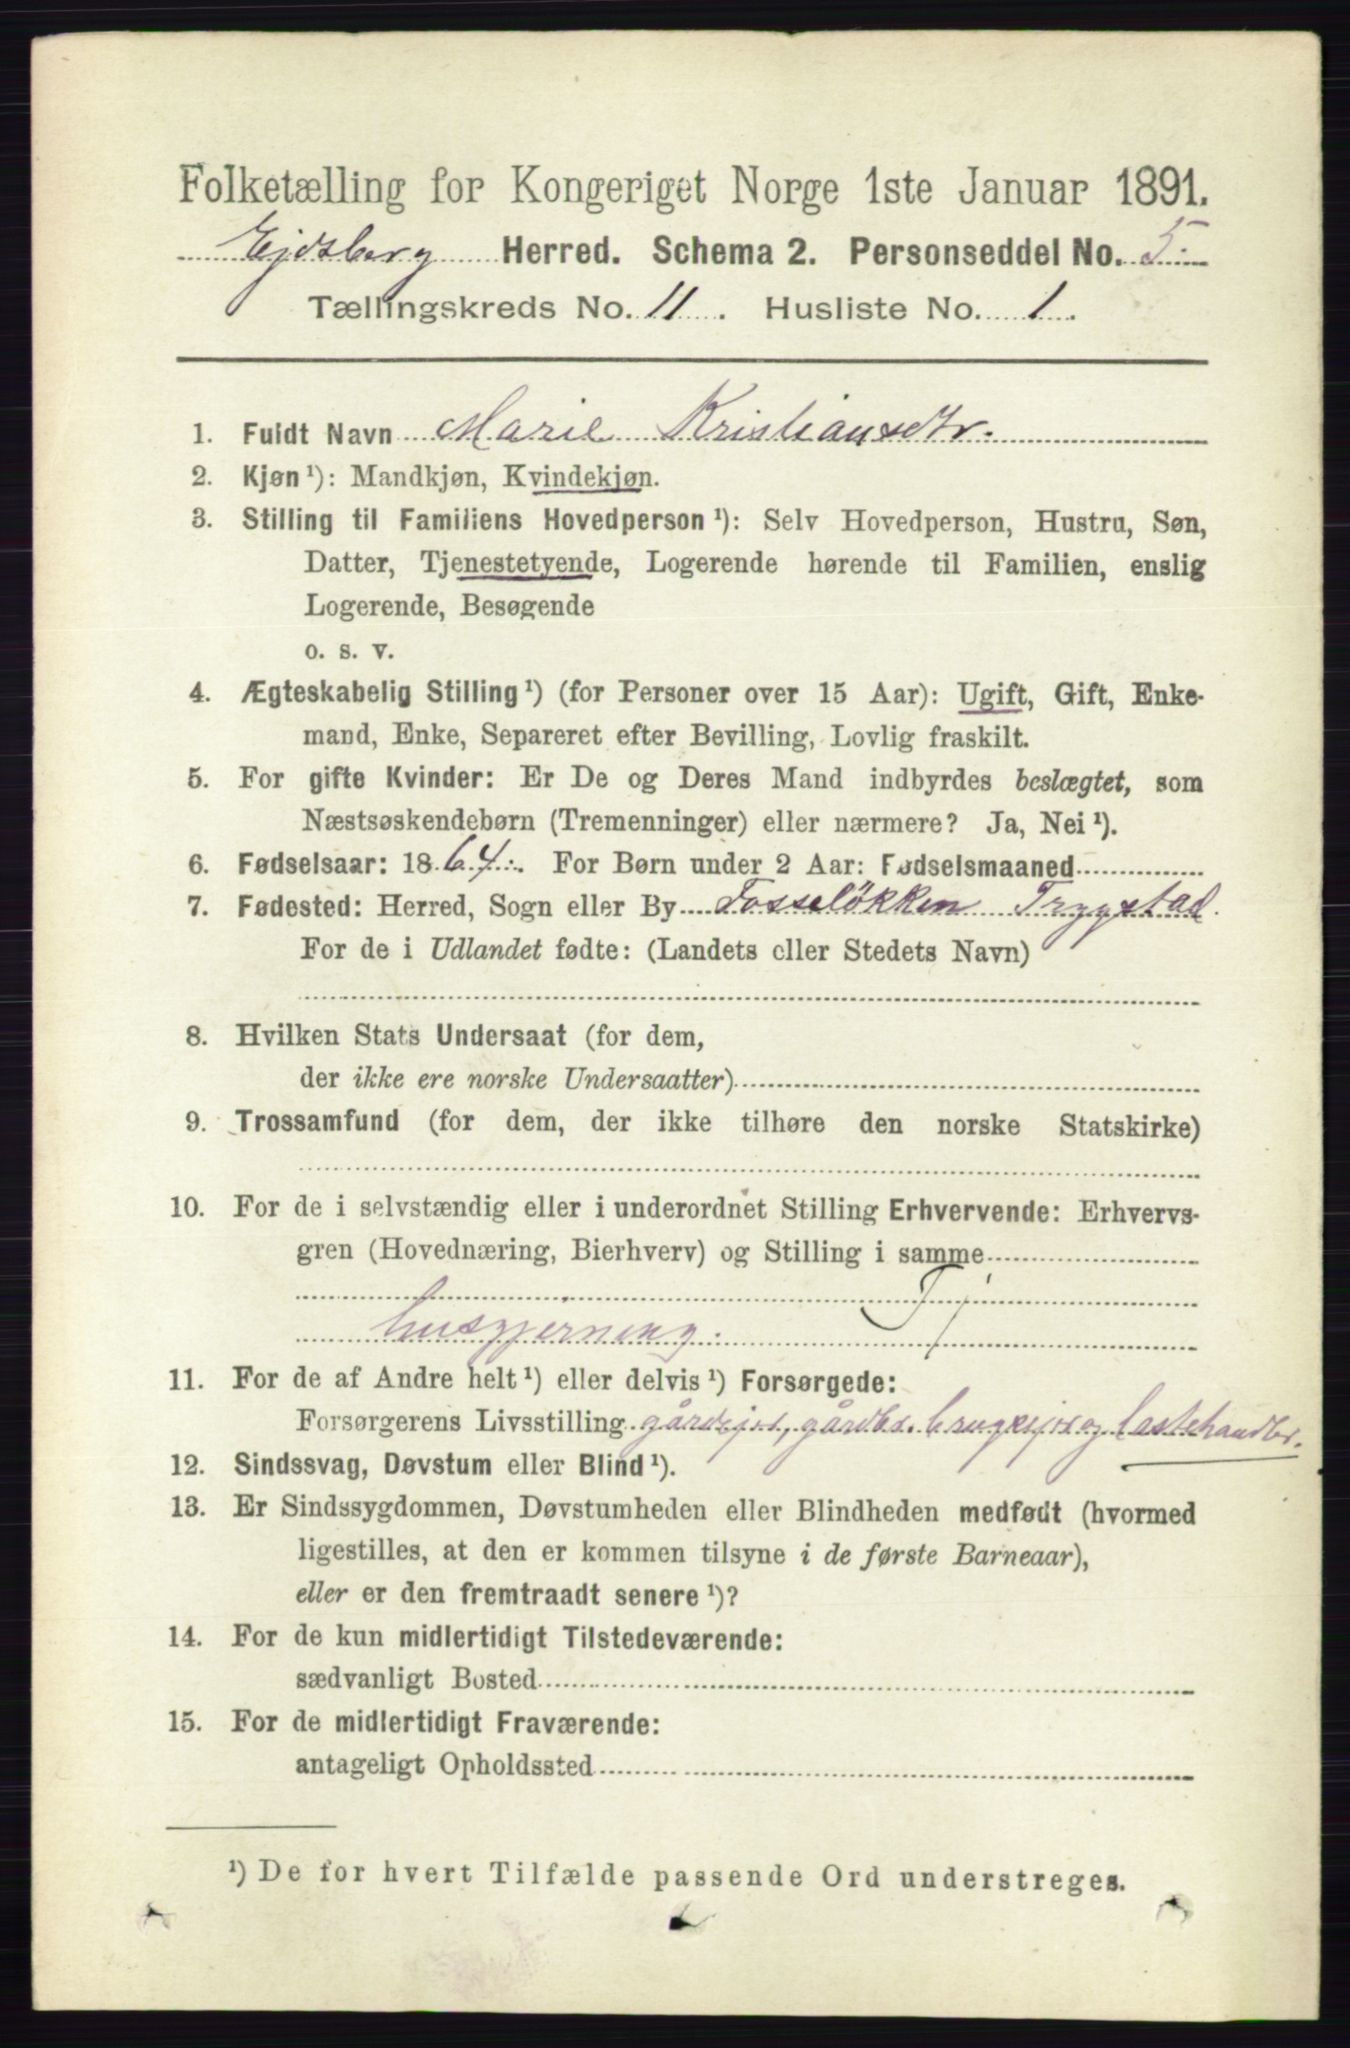 Folketælling for Kongeriget Norge 1ste Januar 1891.
Ejdsberg Herred. Schema 2. Personseddel No. 5.
Tællingskreds No. 11. Husliste No. 1.
1. Fuldt Navn Marie Kristiansdtr.
2. Kjøn¹): Mandkjøn, Kvindekjøn.
3. Stilling til Familiens Hovedperson¹): Selv Hovedperson, Hustru, Søn,
Datter, Tjenestetyende, Logerende hørende til Familien, enslig
Logerende, Besøgende
o. s. v.
4. Ægteskabelig Stilling¹) (for Personer over 15 Aar): Ugift, Gift, Enke-
mand, Enke, Separeret efter Bevilling, Lovlig fraskilt.
5. For gifte Kvinder: Er De og Deres Mand indbyrdes beslægtet, som
Næstsøskendebørn (Tremenninger) eller nærmere? Ja, Nei¹).
6. Fødselsaar: 1864. For Børn under 2 Aar: Fødselsmaaned
7. Fødested: Herred, Sogn eller By Fosseløkken Trygstad.
For de i Udlandet fødte: (Landets eller Stedets Navn)
8. Hvilken Stats Undersaat (for dem,
der ikke ere norske Undersaatter)
9. Trossamfund (for dem, der ikke tilhøre den norske Statskirke)
10. For de i selvstændig eller i underordnet Stilling Erhvervende: Erhvervs-
gren (Hovednæring, Bierhverv) og Stilling i samme
Tj
husgjerning.
11. For de af Andre helt¹) eller delvis¹) Forsørgede:
Forsørgerens Livsstilling gårdejer, gårdbr. brugsejer og lastehandler.
12. Sindssvag, Døvstum eller Blind¹).
13. Er Sindssygdommen, Døvstumheden eller Blindheden medfødt (hvormed
ligestilles, at den er kommen tilsyne i de første Barneaar),
eller er den fremtraadt senere¹)?
14. For de kun midlertidigt Tilstedeværende:
sædvanligt Bosted
15. For de midlertidigt Fraværende:
antageligt Opholdssted
¹) De for hvert Tilfælde passende Ord understreges.